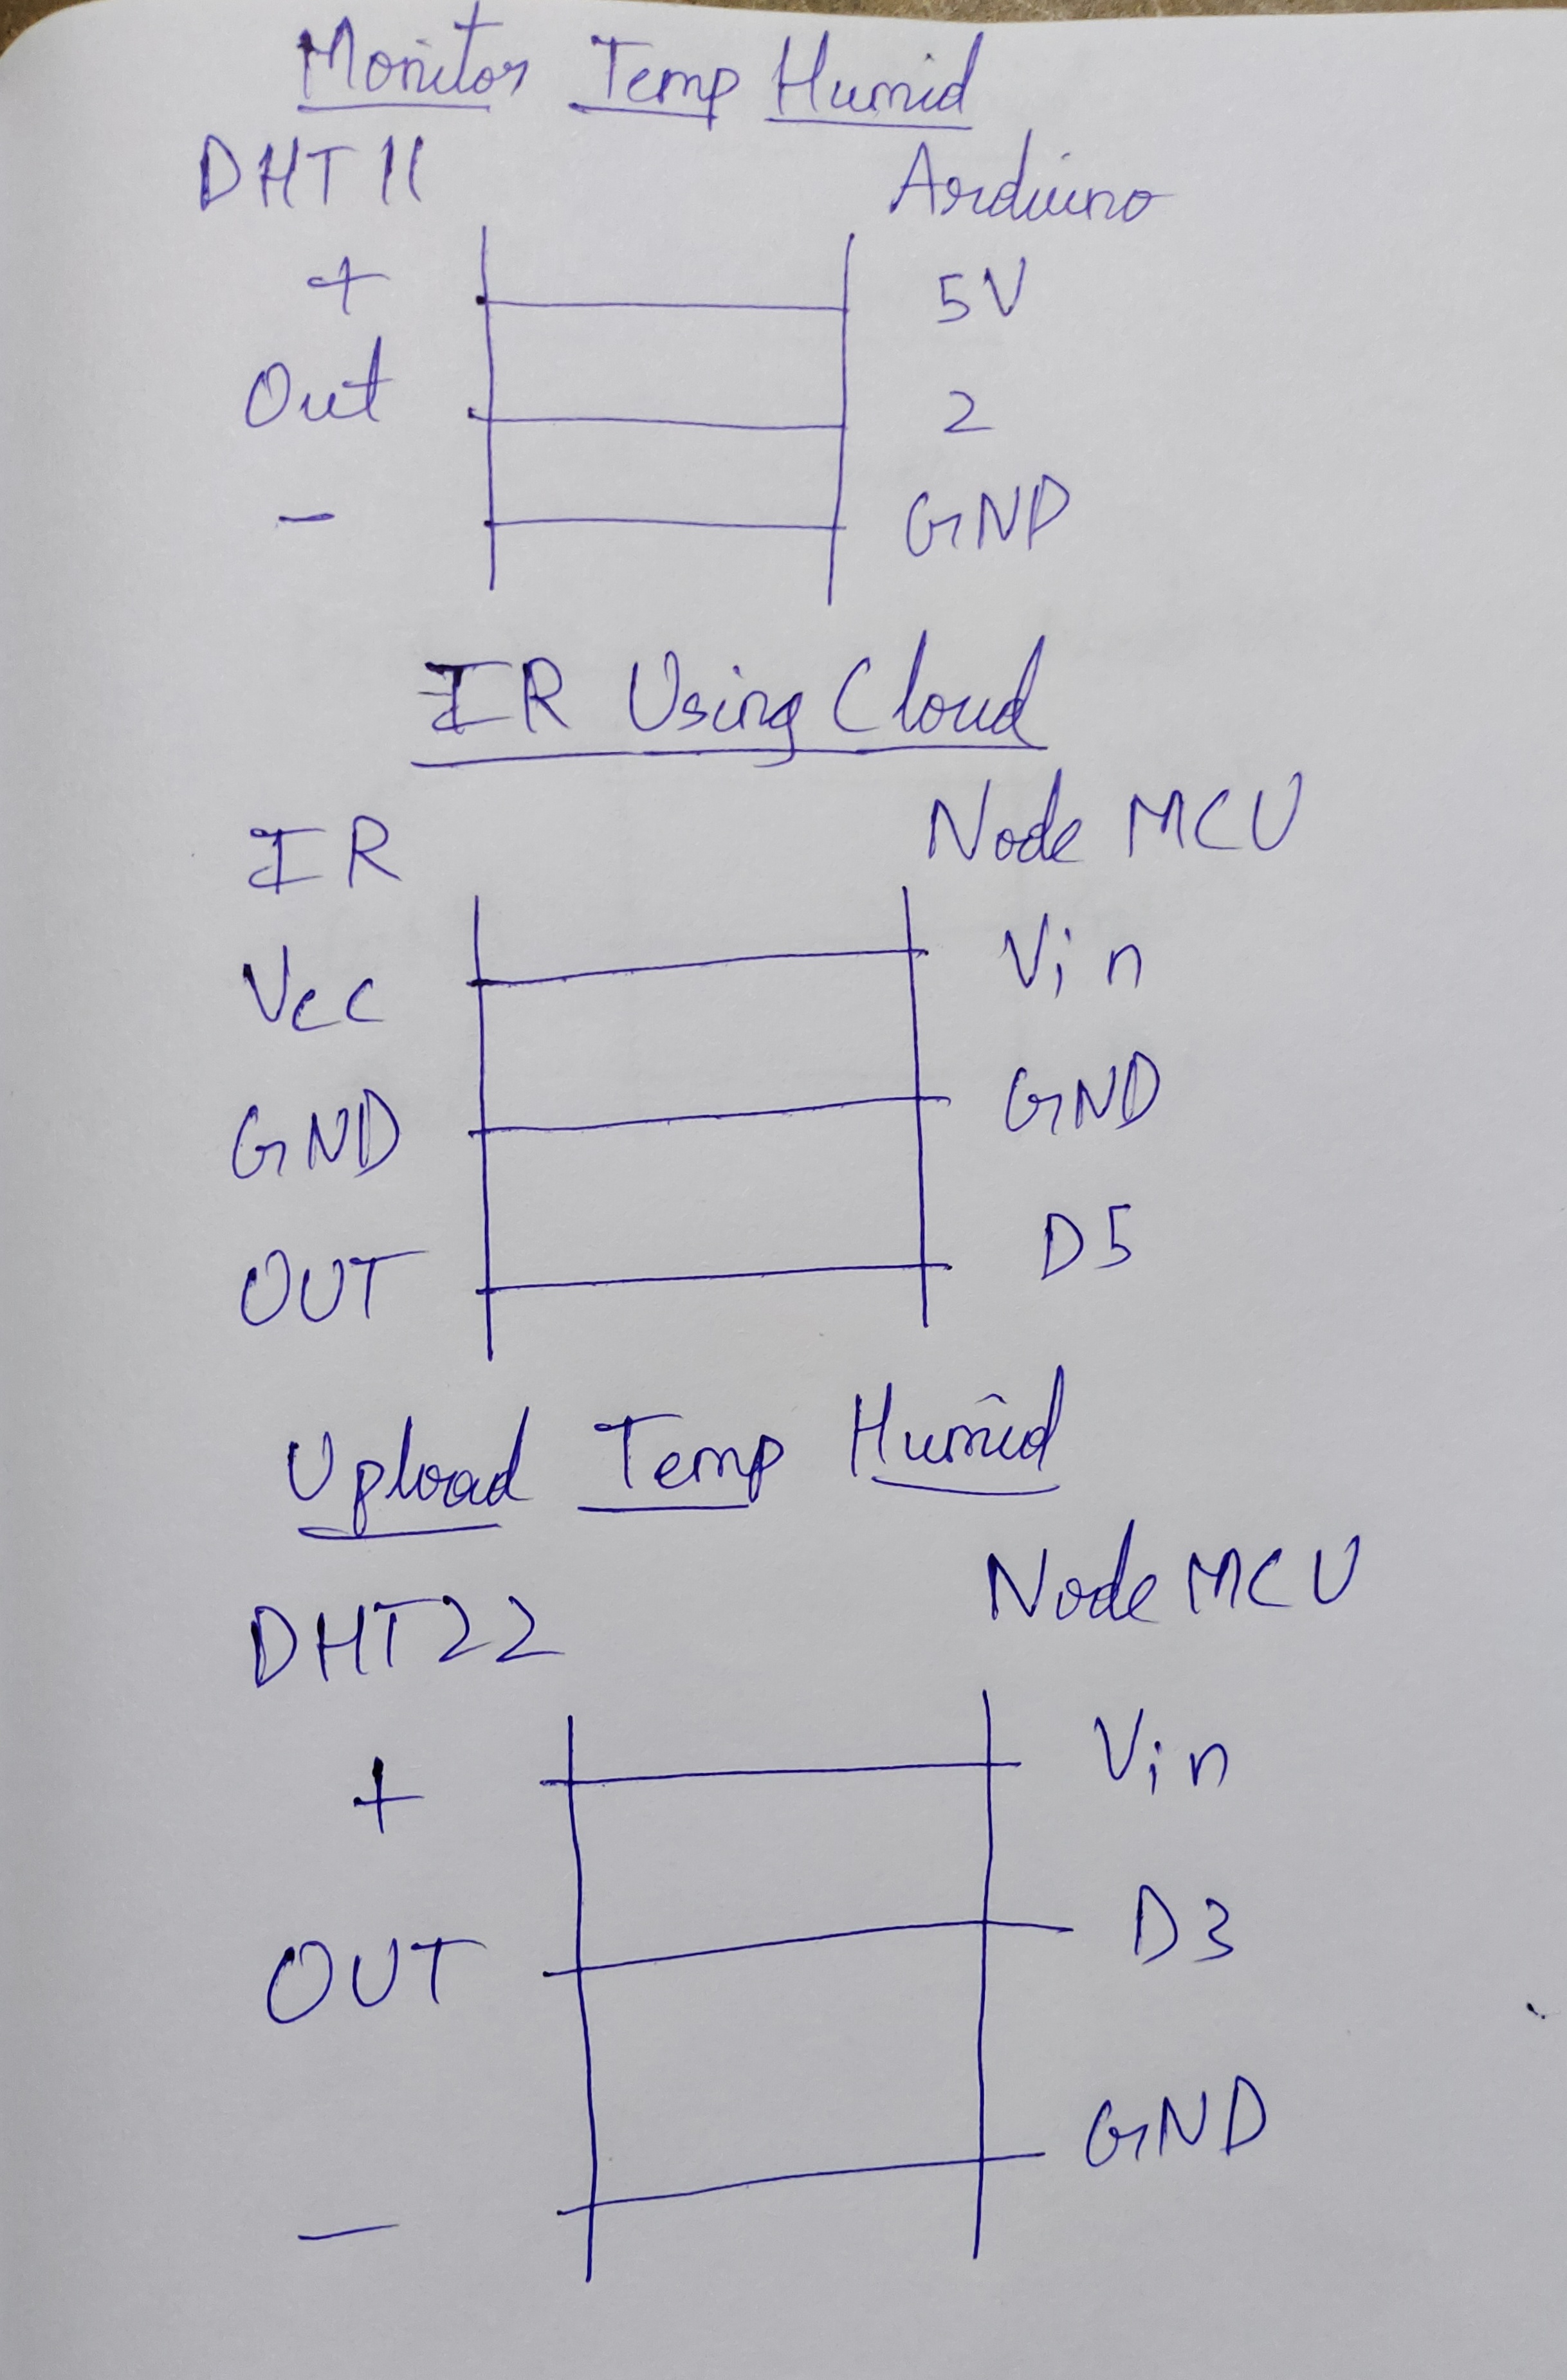 Monitor Temp Humid
DHT 11 Arduino
+ 5V
Out 2
- GND
IR Using Cloud
IR Node MCU
Vcc Vin
GND GND
OUT D5
Upload Temp Humid
DHT22 Node MCU
+ Vin
OUT D3
- GND